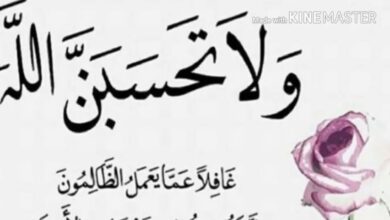 Made with KINEMASTER
وَلَا تَحْسَبَنَّ اللَّهَ
غَافِلاً عَمَّا يَعْمَلُ الظَّالِمُونَ